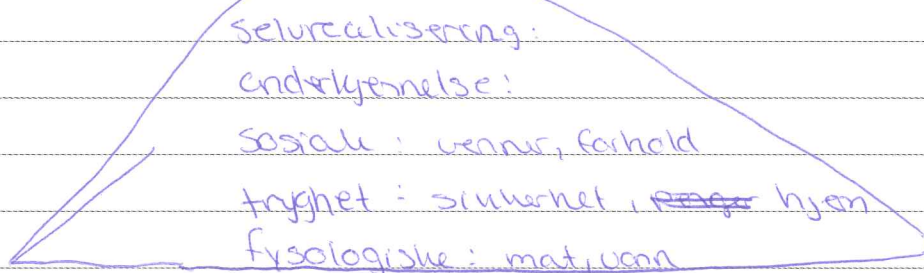 Selvrealisering:
anderkjennelse:
Sosiale : venner, forhold
tryghet : sikkerhet, hjem
fysologiske : mat, vann